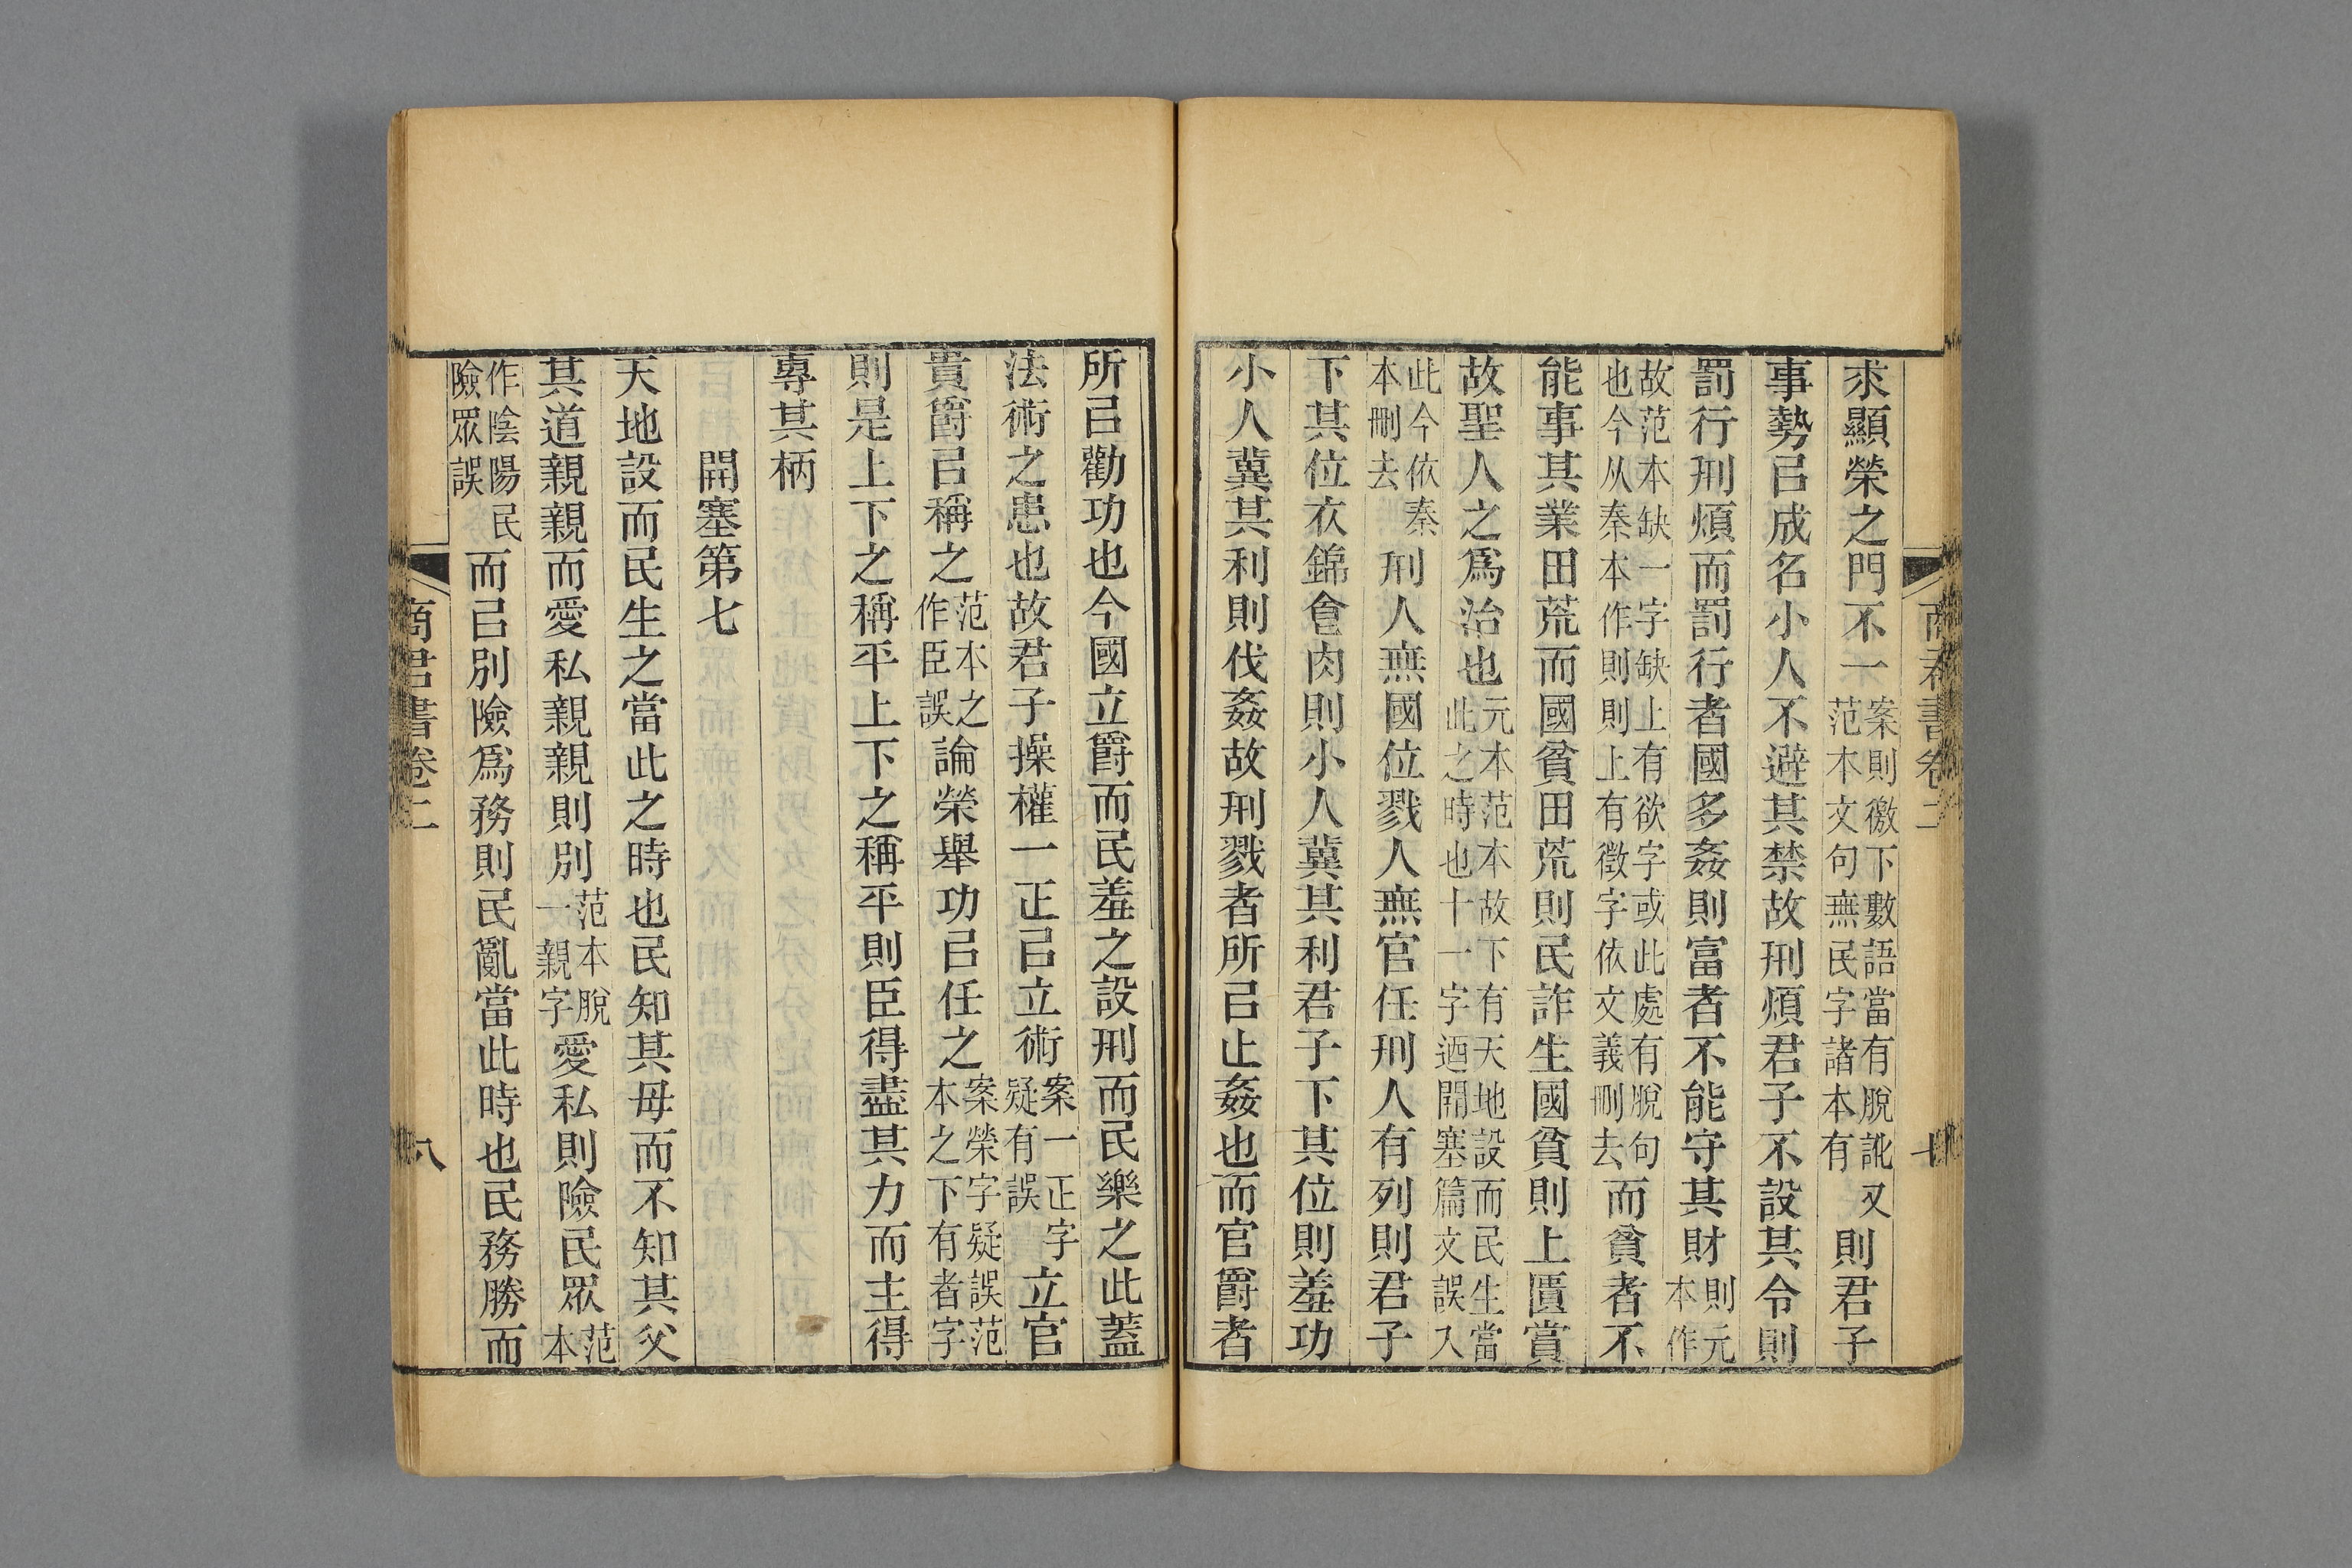 商君書卷二　七
求顯榮之門不一案則徼下數語當有脫訛又范本文句無民字諸本有則君子
事勢㠯成名小人不避其禁故刑煩君子不設其令則
罰行刑煩而罰行者國多姦則富者不能守其財則元本作
故范本缺一字缺上有欲字或此處有脫句也今从秦本作則則上有徵字依文義刪去而貧者不
能事其業田荒而國貧田荒則民詐生國貧則上匱賞
故聖人之爲治也元本范本故下有天地設而民生當此之時也十一字迺開塞篇文誤入
此今依秦本刪去刑人無國位戮人無官任刑人有列則君子
下其位衣錦食肉則小人冀其利君子下其位則羞功
小人冀其利則伐姦故刑戮者所㠯止姦也而官爵者
所㠯勸功也今國立爵而民羞之設刑而民樂之此蓋
法術之患也故君子操權一正㠯立術案一正字疑有誤立官
貴爵㠯稱之范本之作臣誤論榮舉功㠯任之案榮字疑誤范本之下有者字
則是上下之稱平上下之稱平則臣得盡其力而主得
專其柄
開塞第七
天地設而民生之當此之時也民知其母而不知其父
其道親親而愛私親親則別范本脫一親字愛私則險民眾范本
作陰陽民險眾誤而㠯別險爲務則民亂當此時也民務勝而
商君書卷二　八